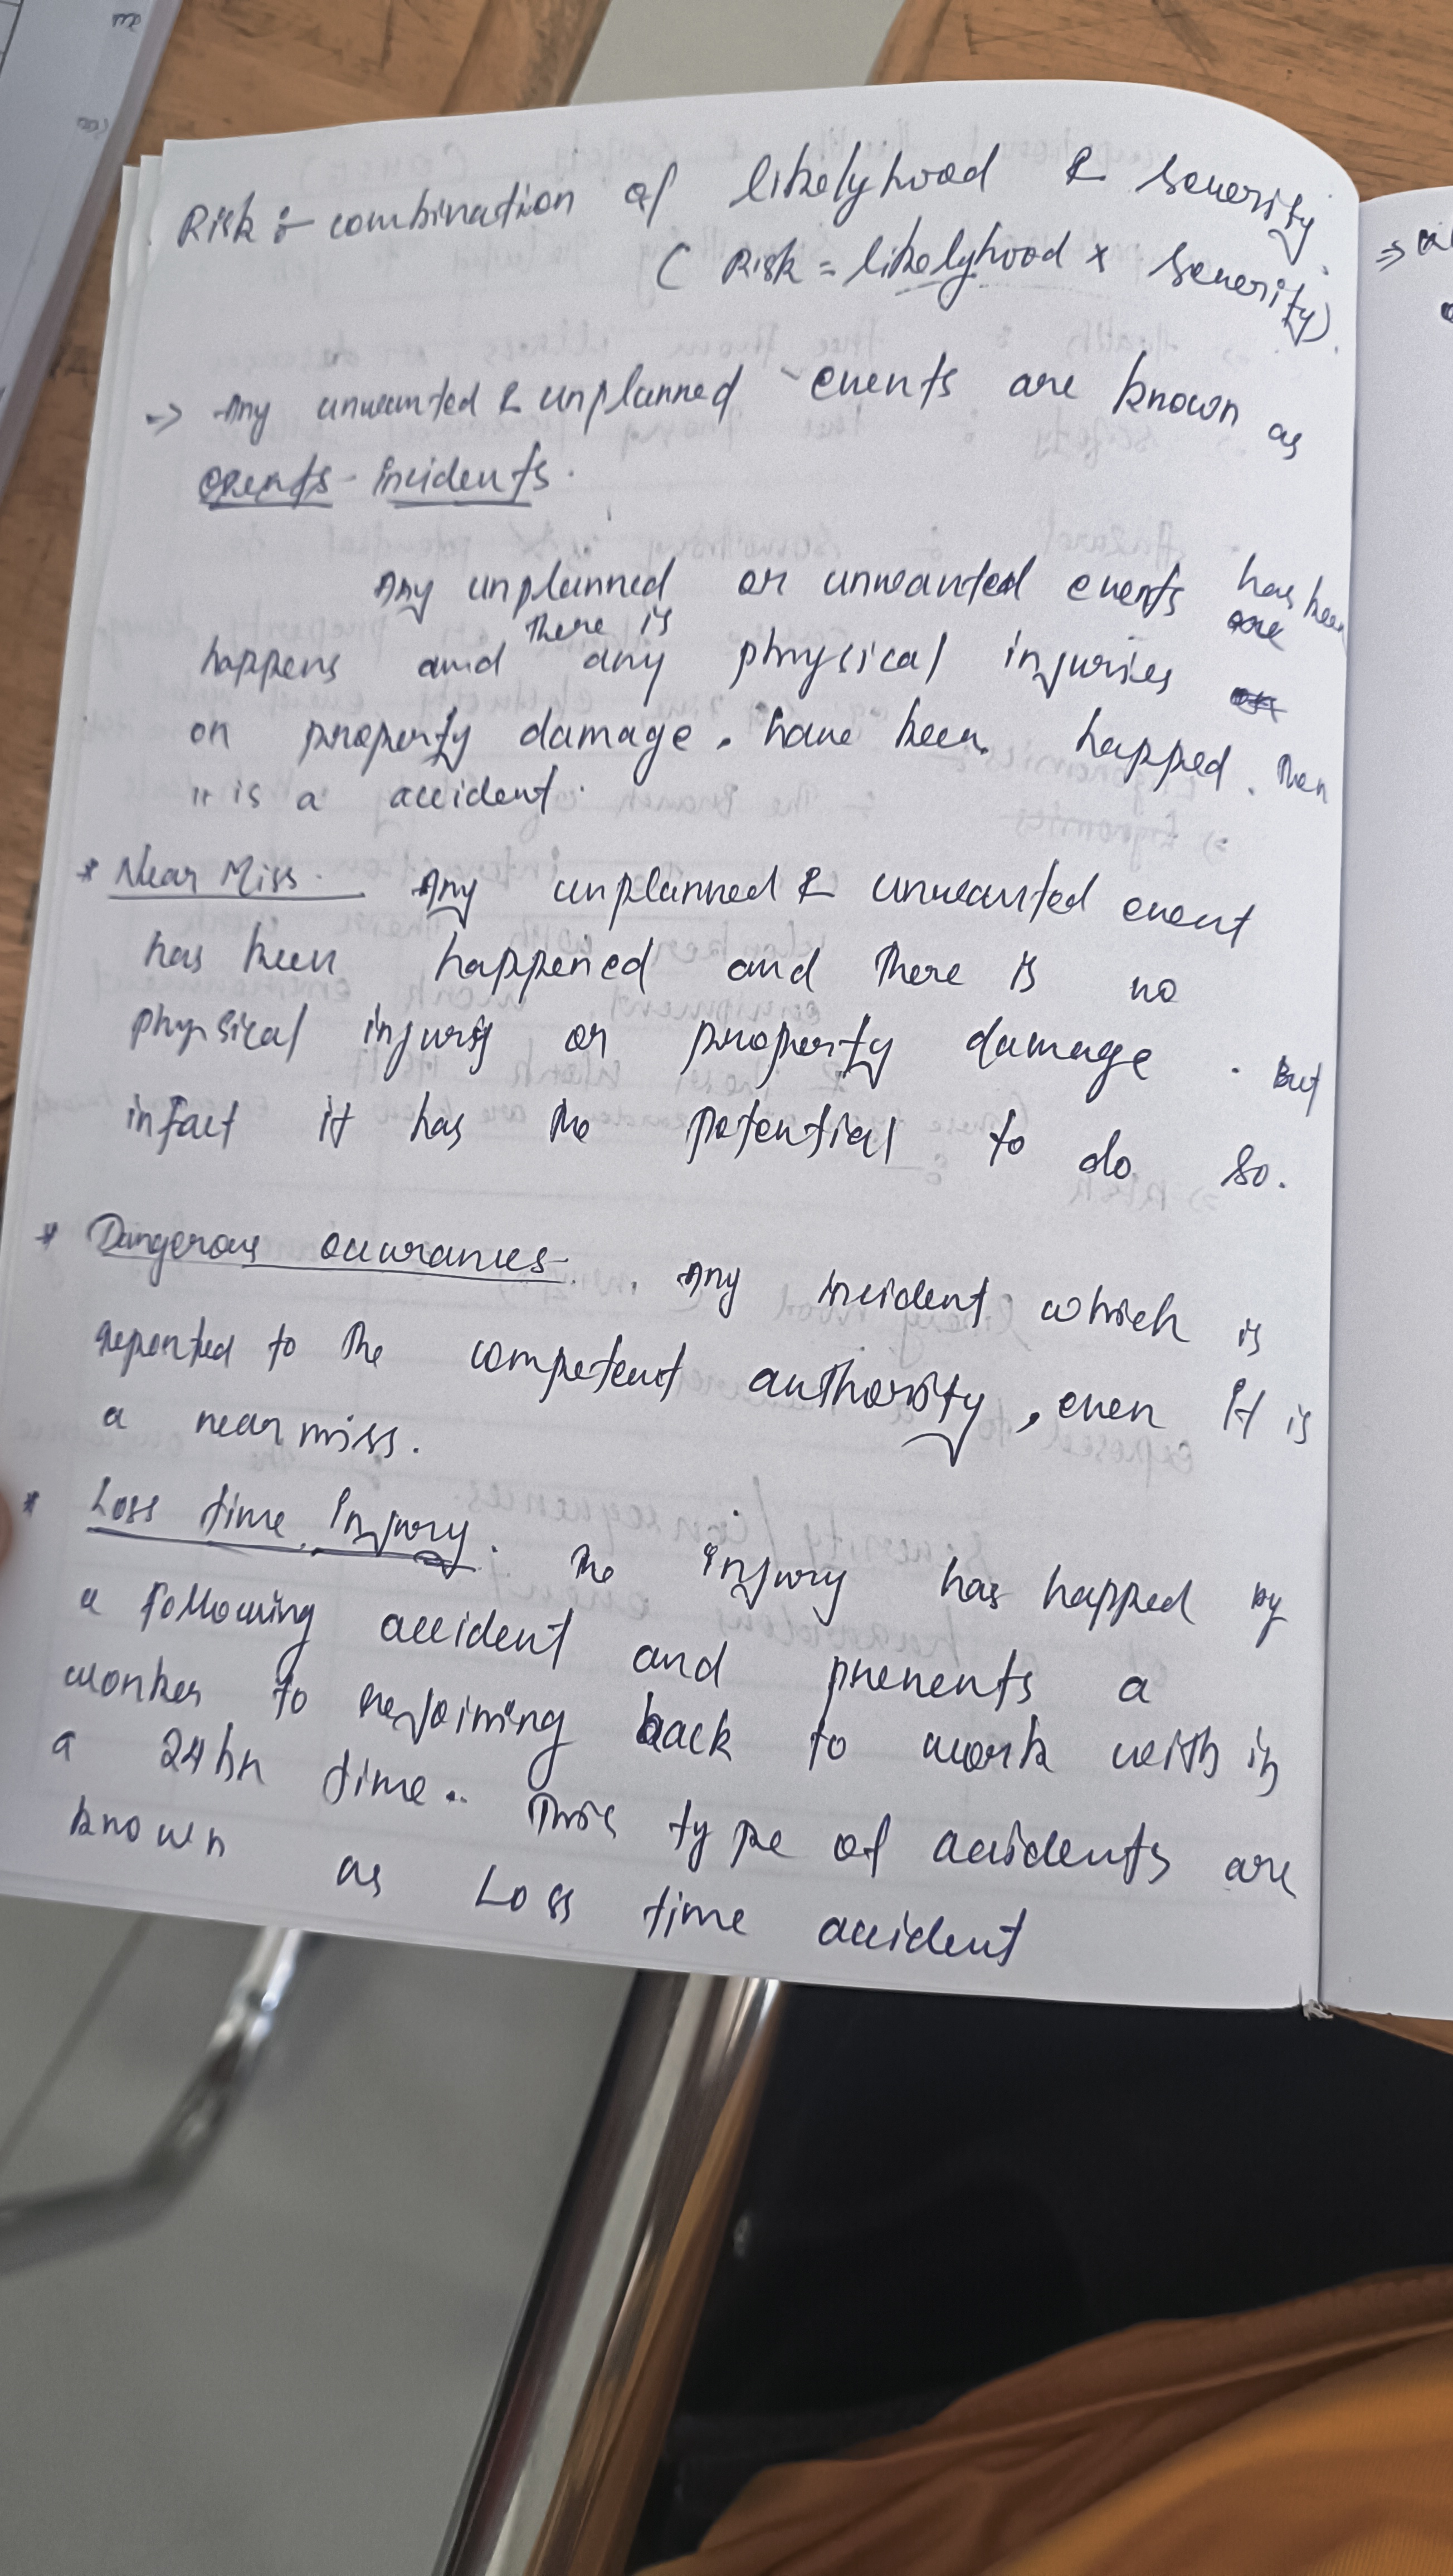 Risk :- combination of likelyhood & severity.
( Risk = likelyhood x severity).
=> Any unwanted & unplanned events are known as
events - incidents.
Any unplanned or unwanted events has been
happens and there is any physical injuries
or property damage. have been happed. Then
it is a accident.
* Near Miss. Any unplanned & unwanted event
has been happened and there is no
physical injury or property damage. But
infact it has the potential to do so.
* Dangerous occurances. Any incident which is
reported to the competent authority, even it is
a near miss.
* Loss time Injury. The injury has happed by
a following accident and prevents a
worker to rejoining back to work with in
a 24hr time.. This type of accidents are
known as Loss time accident